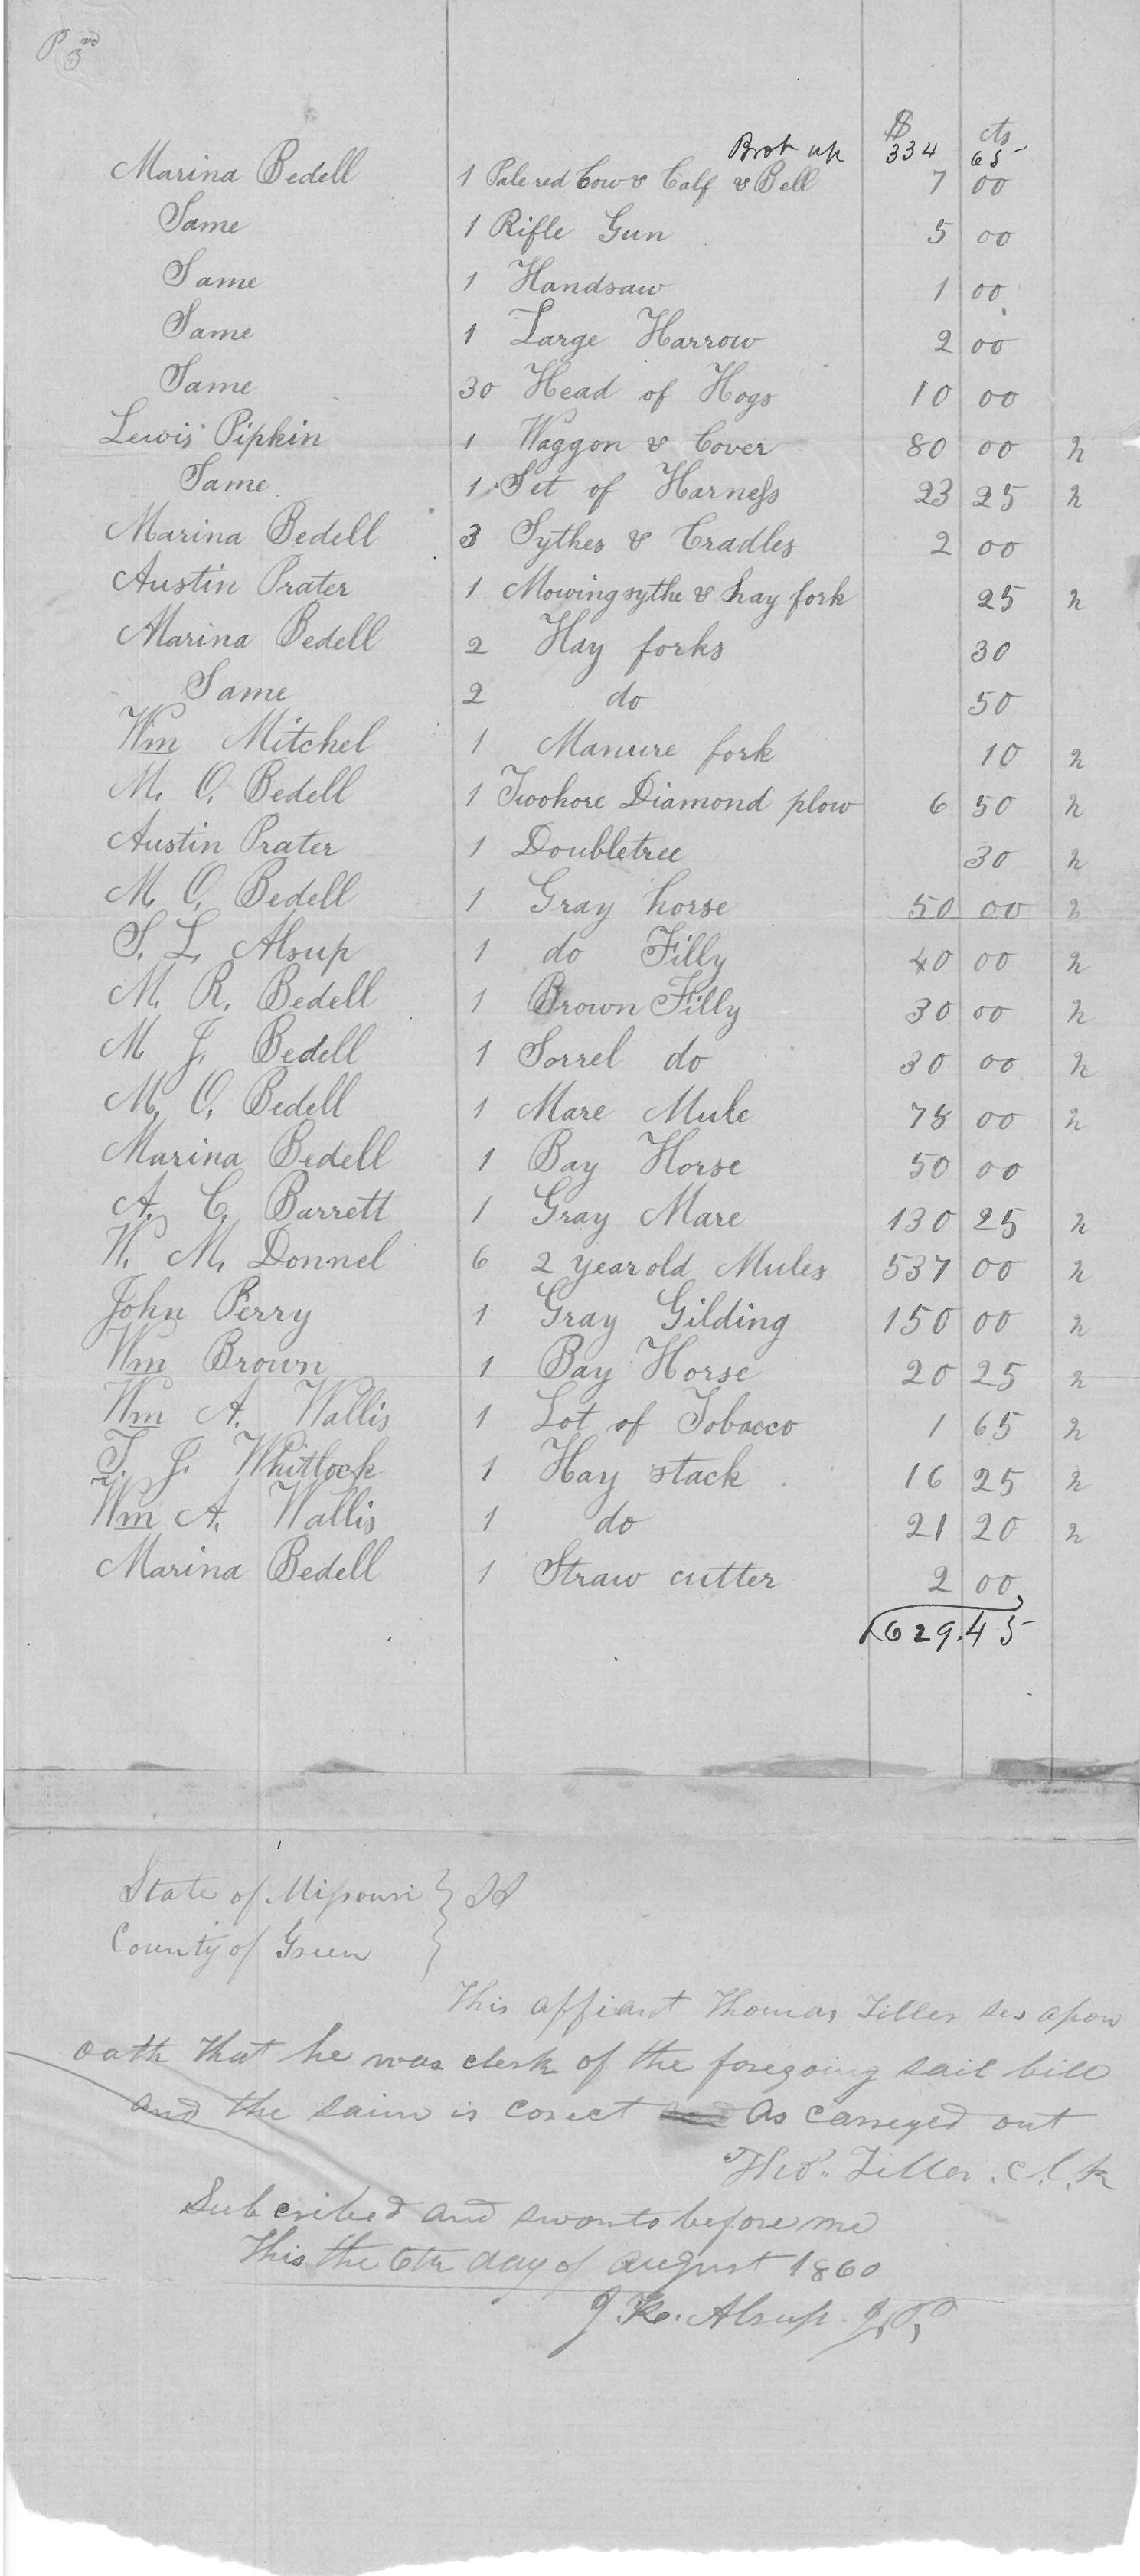 P 3rd
$ cts
Brot up 334 65
Marina Bedell 1 Pale red Cow & Calf & Bell 7 00
Same 1 Rifle Gun 5 00
Same 1 Handsaw 1 00
Same 1 Large Harrow 2 00
Same 30 Head of Hogs 10 00
Lewis Pipkin 1 Waggon & Cover 80 00 n
Same 1 Set of Harness 23 25 n
Marina Bedell 3 Sythes & Cradles 2 00
Austin Prater 1 Mowing sythe & hay fork 25 n
Marina Bedell 2 Hay forks 30
Same 2 do 50
Wm Mitchel 1 Manure fork 10 n
M. O. Bedell 1 Twohore Diamond plow 6 50 n
Austin Prater 1 Doubletree 30 n
M. O. Bedell 1 Gray horse 50 00 n
S. L. Alsup 1 do Filly 40 00 n
M. R. Bedell 1 Brown Filly 30 00 n
M J. Bedell 1 Sorrel do 30 00 n
M. O. Bedell 1 Mare Mule 78 00 n
Marina Bedell 1 Bay Horse 50 00
A. C. Barrett 1 Gray Mare 130 25 n
W. M. Donnel 6 2 year old Mules 537 00 n
John Perry 1 Gray Gilding 150 00 n
Wm Brown 1 Bay Horse 20 25 n
Wm A. Wallis 1 Lot of Tobacco 1 65 n
T. J. Whitlock 1 Hay stack 16 25 n
Wm A. Wallis 1 do 21 20 n
Marina Bedell 1 Straw cutter 2 00
1629.45
State of Missouri } SS
County of Green }
This affiant Thomas Tiller ses apon
oath that he was clerk of the foregoing sail bill
and the saim is corect as carreyed out
Thos. Tiller. clk
Subcribed and swornto before me
This the 6th day of august 1860
J Ko. Alsup J.P.